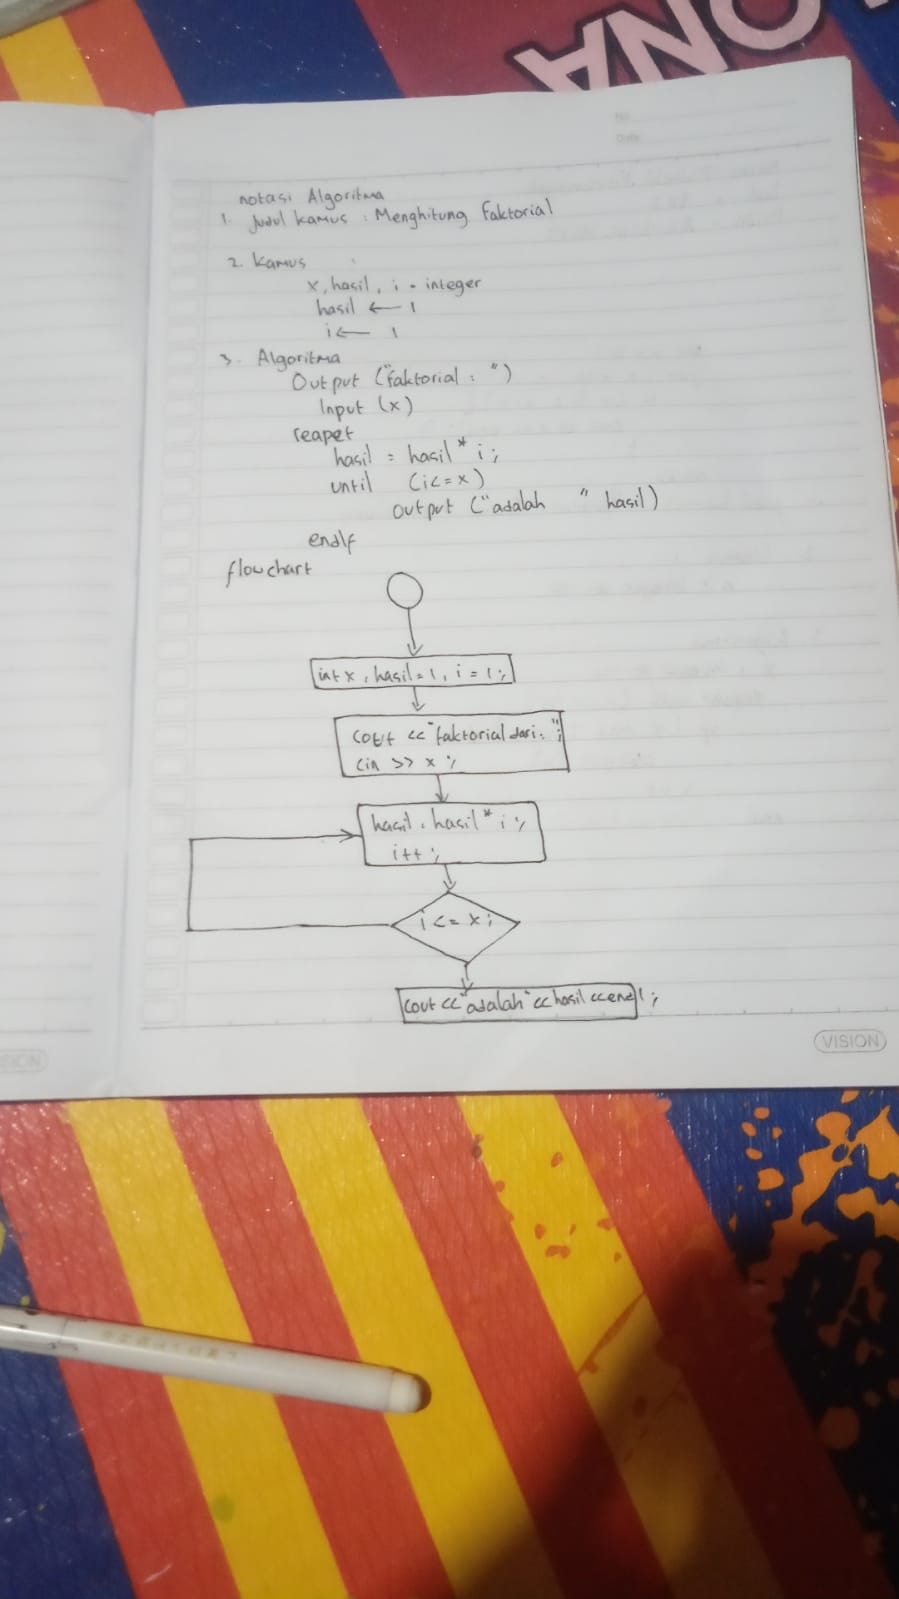 ONA
No
Date
notasi Algoritma
1. Judul kamus : Menghitung Faktorial
2. Kamus
x, hasil, i = integer
hasil ← 1
i ← 1
3. Algoritma
Output ("faktorial : ")
Input (x)
reapet
hasil = hasil * i ;
until (i<=x)
output ("adalah " hasil)
endif
flowchart
int x, hasil=1, i = 1;
cout << "faktorial dari: ";
cin >> x ;
hasil = hasil * i ;
i++ ;
i <= x ;
cout << "adalah" << hasil << endl ;
VISION
SION